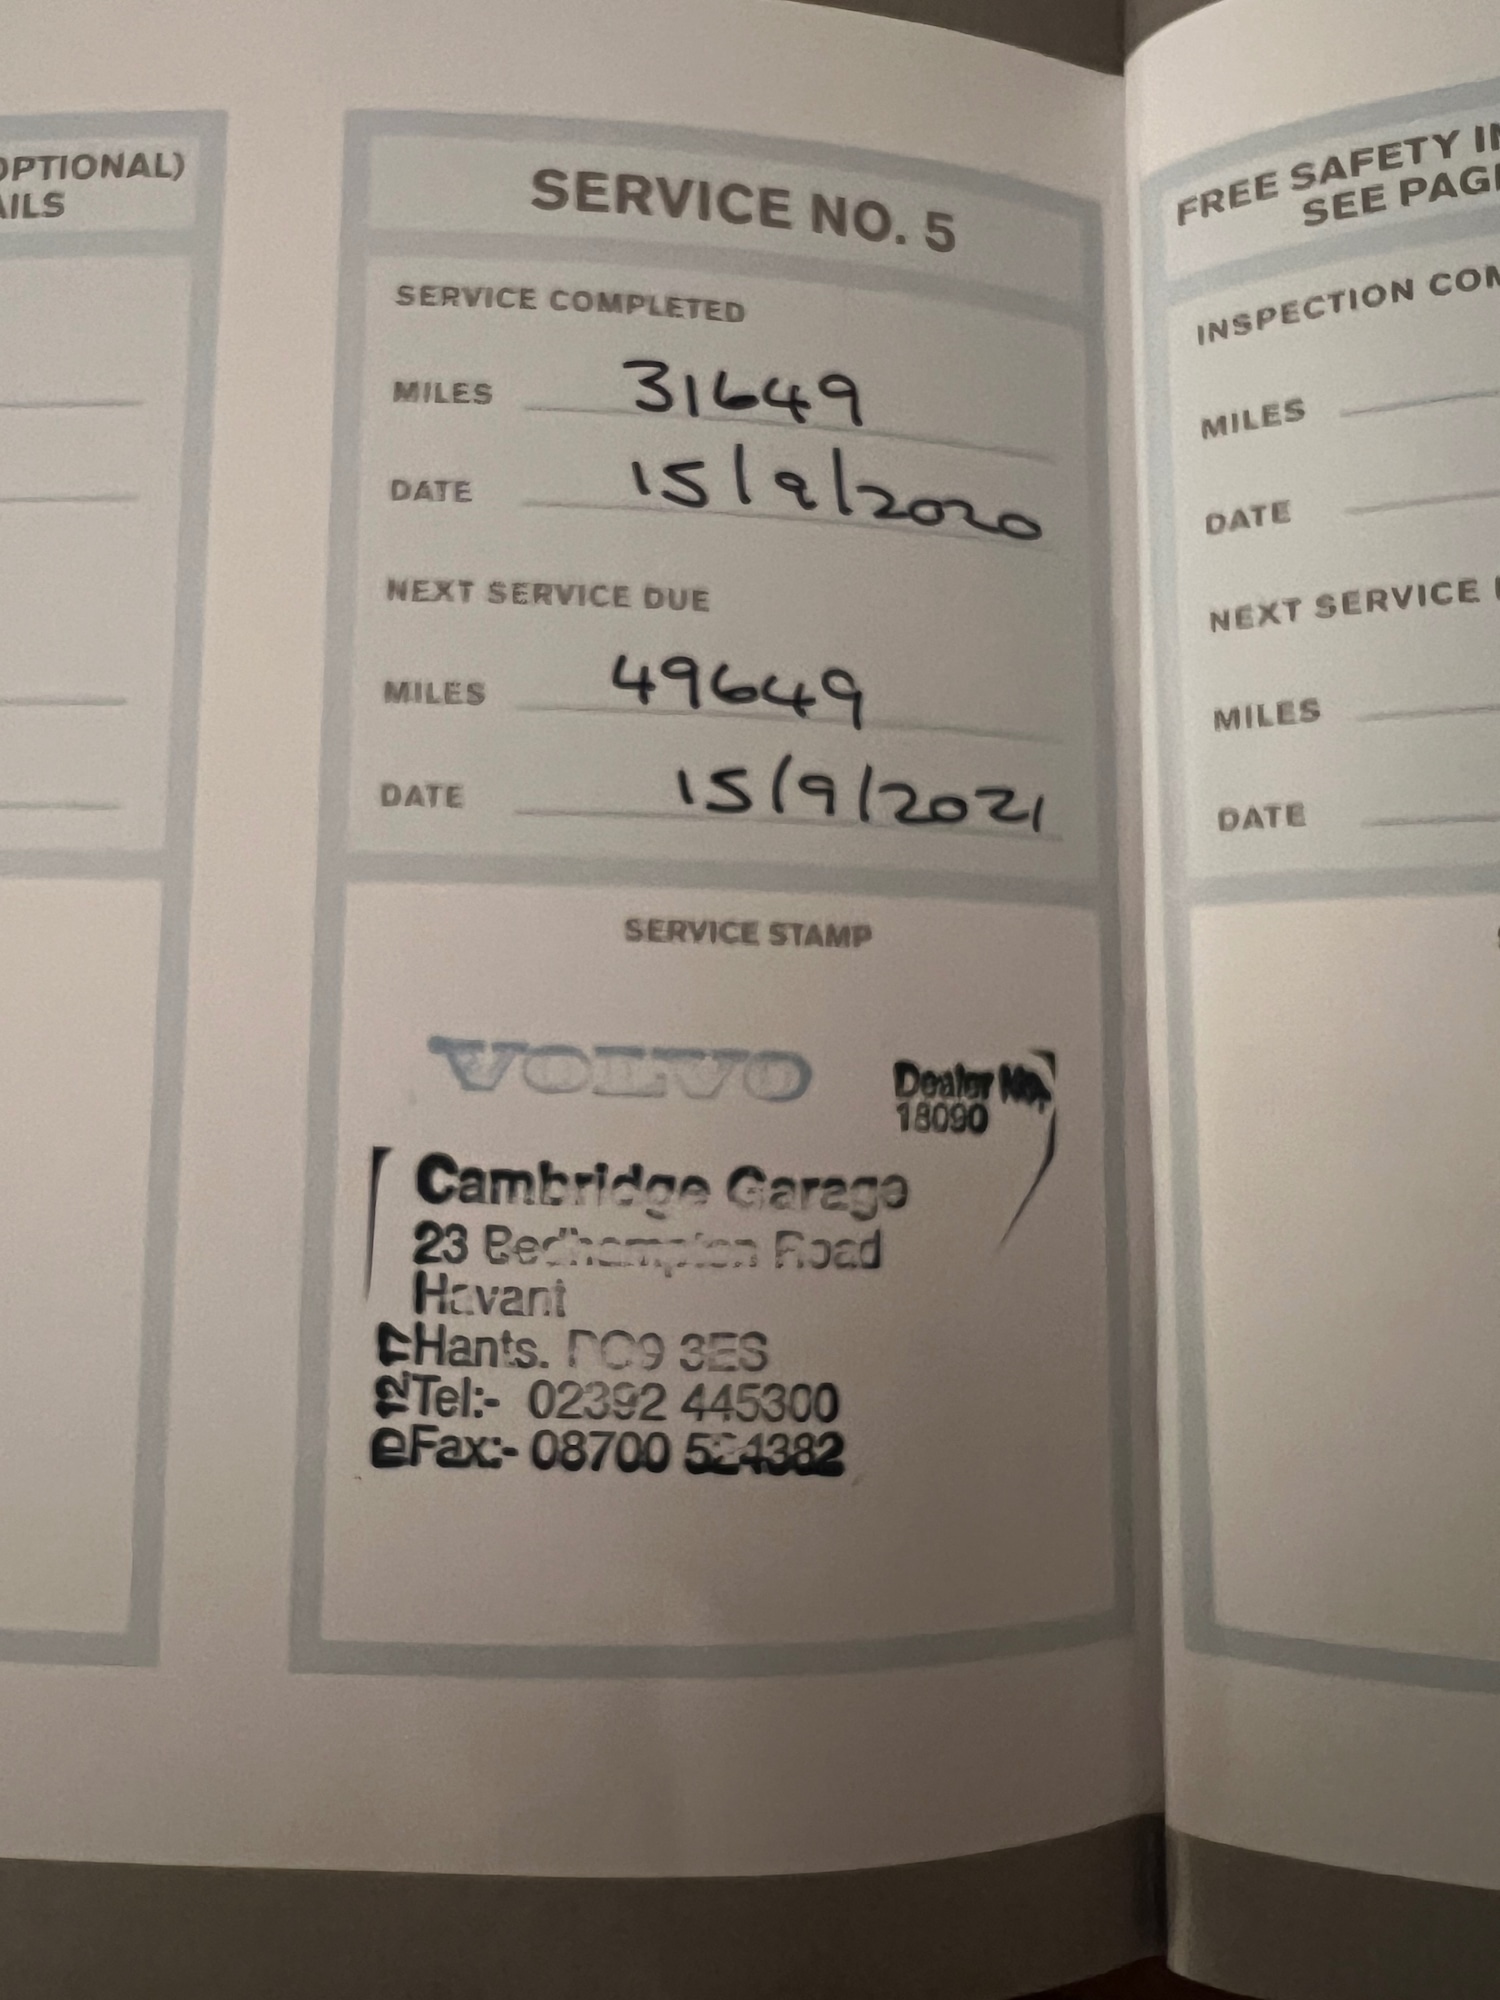 OPTIONAL)
AILS
SERVICE NO. 5
SERVICE COMPLETED
MILES 31649
DATE 15/9/2020
NEXT SERVICE DUE
MILES 49649
DATE 15/9/2021
SERVICE STAMP
VOLVO
Dealer No.
18090
Cambridge Garage
23 Bedhampton Road
Havant
Hants. PO9 3ES
Tel:- 02392 445300
Fax:- 08700 524382
FREE SAFETY IN
SEE PAGE
INSPECTION COM
MILES
DATE
NEXT SERVICE
MILES
DATE